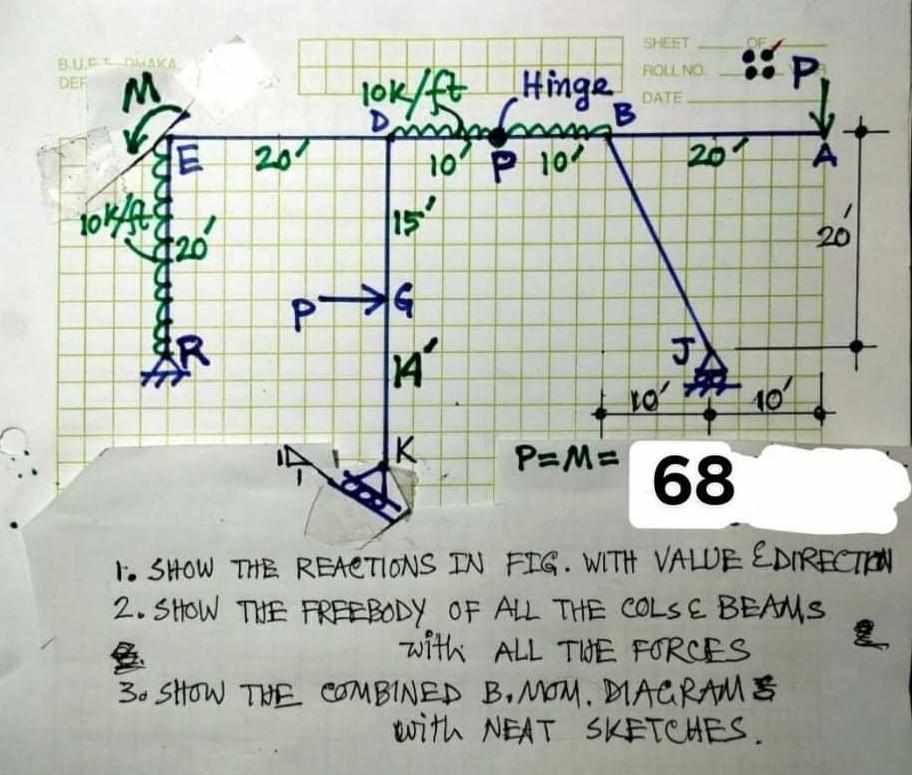 B.U.E.T. DHAKA
SHEET OF
ROLL NO.
DATE
M
10K/ft
Hinge
P
D
B
E
20′
10′
P
10′
20′
A
10K/ft
20′
15′
20′
P
G
R
14′
J
10′
10′
K
1
1
P=M= 68
1. SHOW THE REACTIONS IN FIG. WITH VALUE & DIRECTION
2. SHOW THE FREEBODY OF ALL THE COLS & BEAMS
with ALL THE FORCES
3. SHOW THE COMBINED B.MOM. DIAGRAMS
with NEAT SKETCHES.